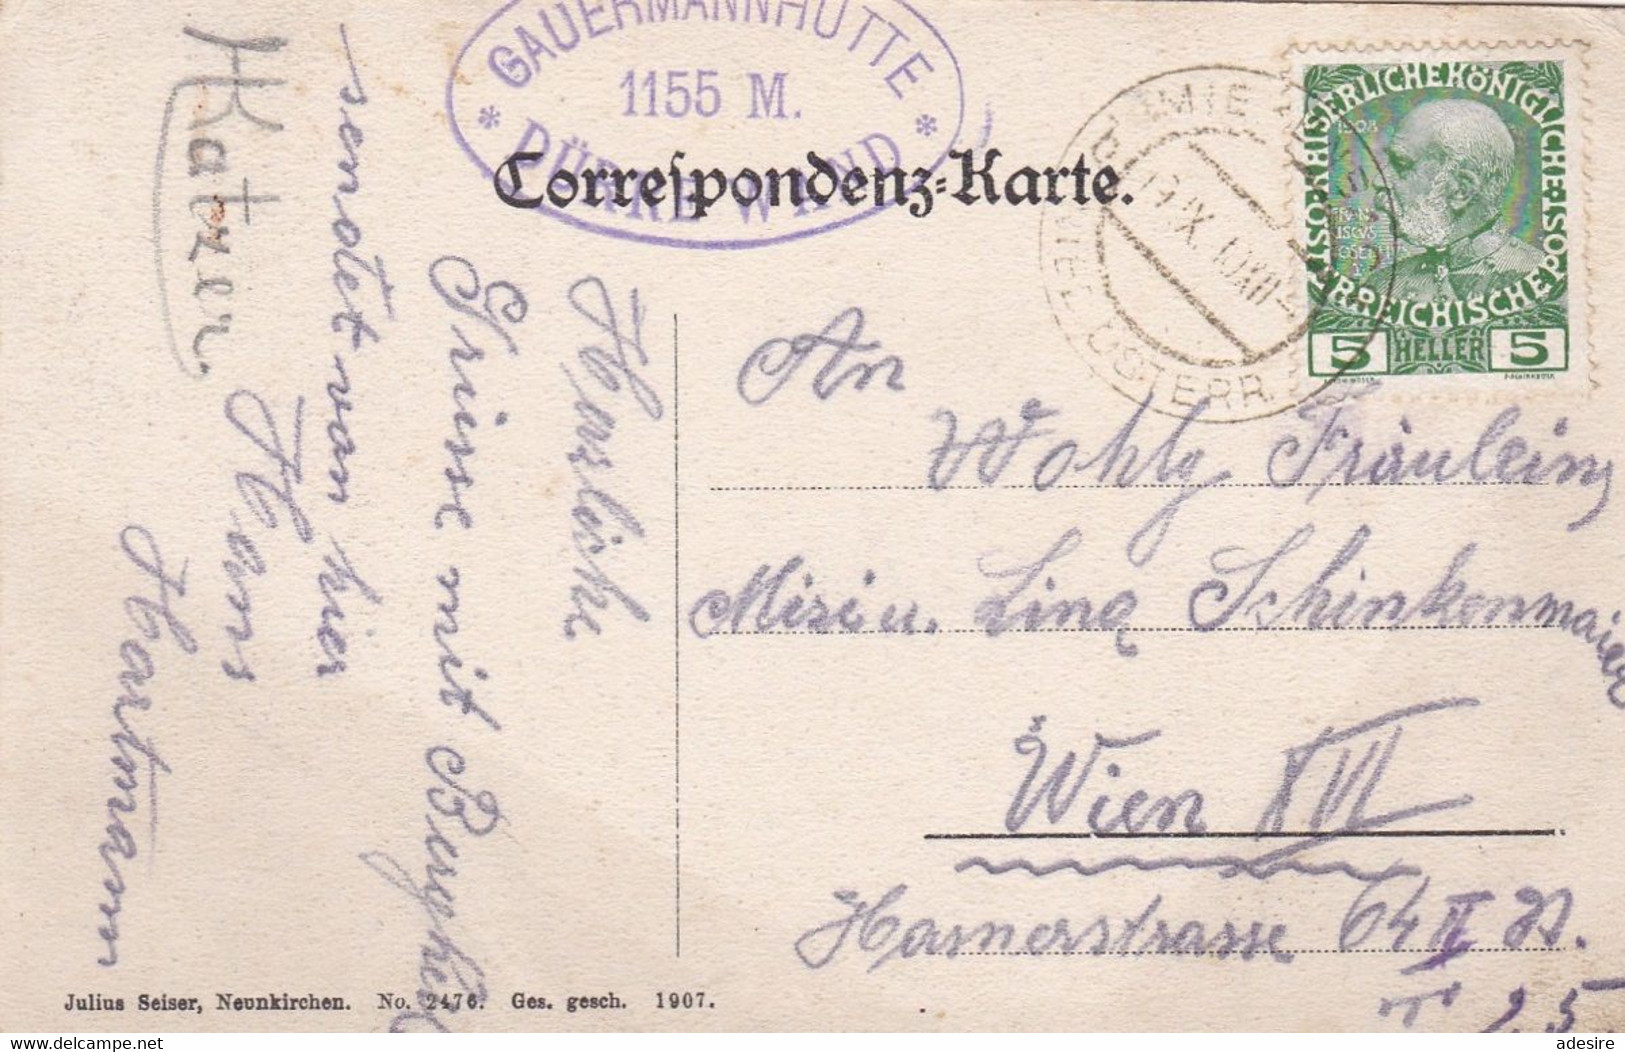 GAUERMANNHÜTTE
1155 M.
* DÜRRE WAND *
Correspondenz-Karte.
KAISERLICHE KÖNIGLICHE ÖSTERREICHISCHE POST
1908
FRAN
ISCVS
IOSEPH I
5 HELLER 5
ÖSTERR.
Herzliche
Grüsse mit Bergheil
sendet von hier
Hans
Hartmann
Katzer
An
Wohlg Fräulein,
Mizi u. Lina Schinkenmaier
Wien XVI
Hasnerstrasse 64 II
T. 25
Julius Seiser, Neunkirchen. No. 2476. Ges. gesch. 1907.
adesire